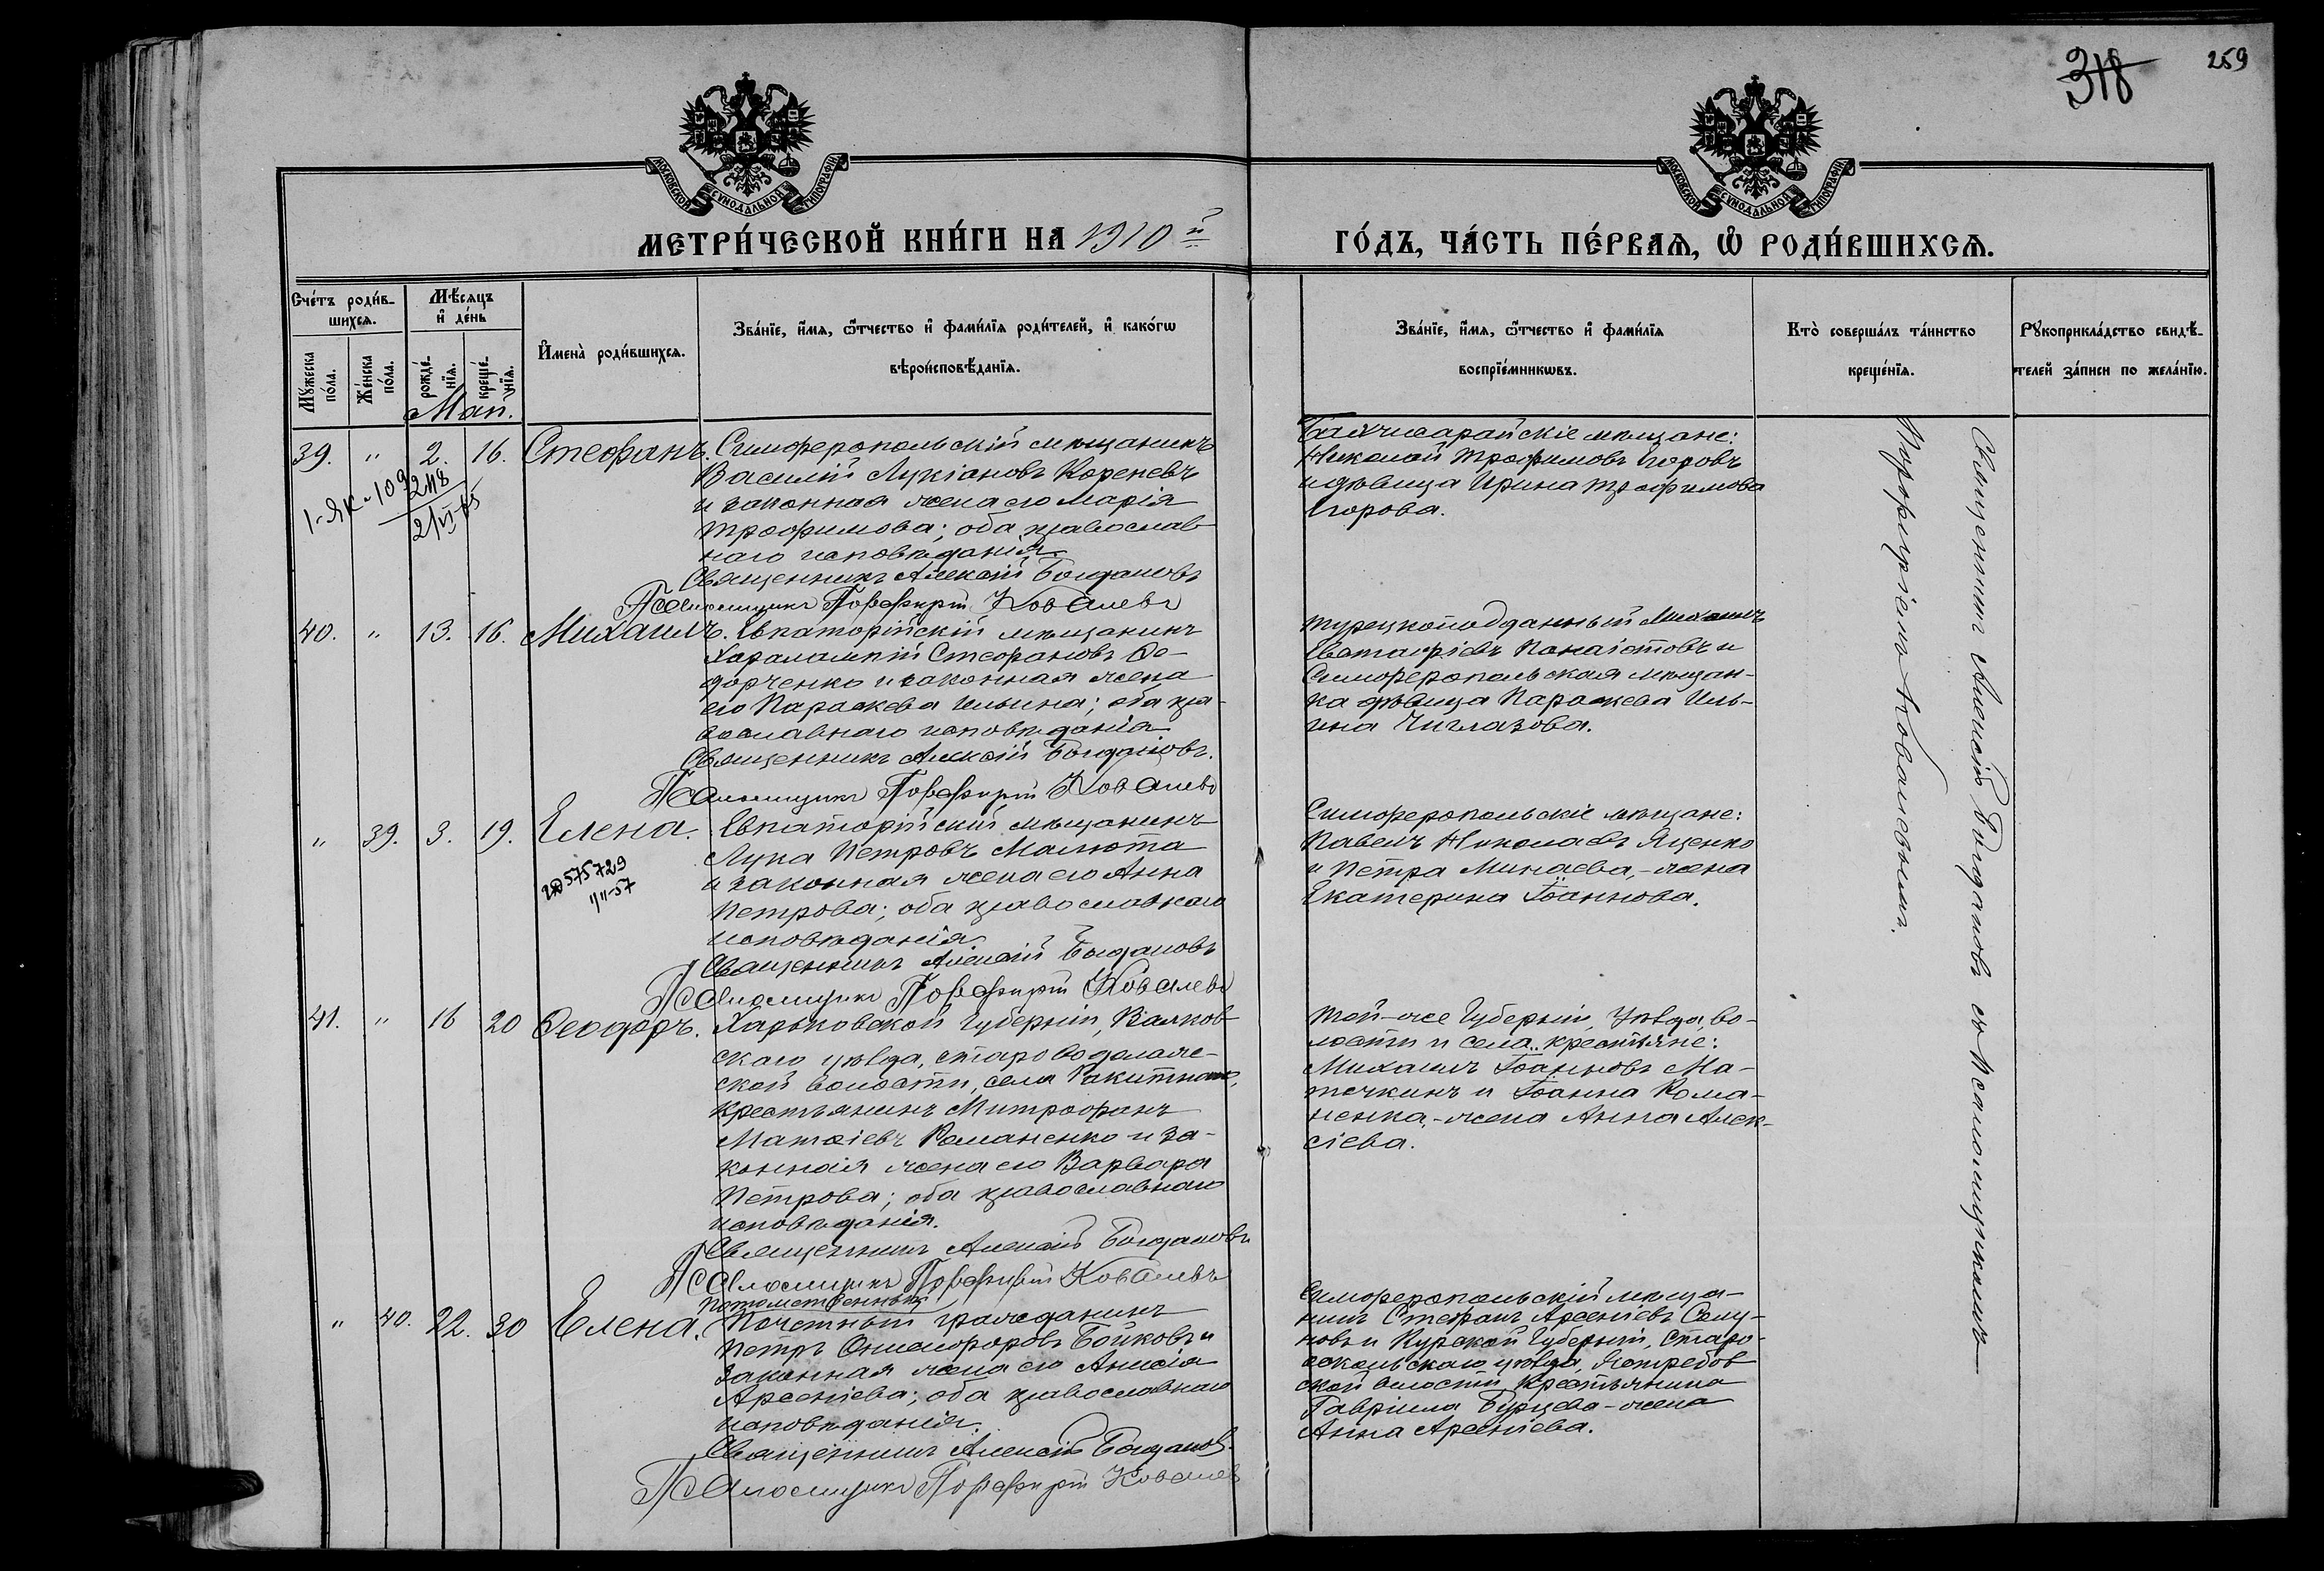 318
259
МОСКОВСКОЙ СѴНОДАЛЬНОЙ ТИПОГРАФІИ
МОСКОВСКОЙ СѴНОДАЛЬНОЙ ТИПОГРАФІИ
МЕТРИ́ЧЕСКОЙ КНИ́ГИ НА 1910 й
ГО́ДЪ, ЧА́СТЬ ПЕ́РВАѦ, Ѡ҆ РОДИ́ВШИХСѦ.
Сче́тъ роди́в-
шихсѧ.
Мѣ́сѧцъ
и҆ де́нь
Мꙋ́жеска
по́ла.
Же́нска
по́ла.
рожде́-
нїѧ.
креще́-
нїѧ.
И҆мена̀ роди́вшихсѧ.
Зва́нїе, и҆́мѧ, ѻ҆́тчество и҆ фами́лїѧ роди́телей, и҆ како́гѡ
вѣроисповѣ́данїѧ.
Зва́нїе, и҆́мѧ, ѻ҆́тчество и҆ фами́лїѧ
воспрїе́мникѡвъ.
Кто̀ соверша́лъ та́инство
креще́нїѧ.
Рꙋкоприкла́дство свидѣ́-
телей за́писи по жела́нїю.
Май.
39. " 2. 16. Стефанъ. Симферопольскій мѣщанинъ
Василій Лукіановъ Кореневъ
и законная жена его Марія
Трофимова; оба православ-
наго исповѣданія
Священникъ Алексій Богдановъ
Псаломщикъ Порфирій Ковалевъ
Бахчисарайскіе мѣщане:
Николай Трофимовъ Егоровъ
и дѣвица Ирина Трофимова
Егорова.
40. " 13. 16. Михаилъ. Евпаторійскій мѣщанинъ
Харалампій Стефановъ Ѳе-
дорченко и законная жена
его Параскева Ильина; оба пра-
вославнаго исповѣданія
Священникъ Алексій Богдановъ.
Псаломщикъ Порфирій Ковалевъ
Турецкоподданный Михаилъ
Евстафіевъ Панаіотовъ и
Симферопольская мѣщан-
ка дѣвица Параскева Иль-
ина Чиглазова.
" 39. 3. 19. Елена. Евпаторійскій мѣщанинъ
Лука Петровъ Малюта
и законная жена его Анна
Петрова; оба православнаго
исповѣданія
Священникъ Алексій Богдановъ
Псаломщикъ Порфирій Ковалевъ
575729
Симферопольскіе мѣщане:
Павелъ Николаевъ Яценко
и Петра Минаева,-жена
Екатерина Іоаннова.
41. " 16 20 Ѳеодоръ. Харьковской Губерніи, Валков-
скаго уѣзда, староводолаж-
ской волости, села Ракитнаго,
крестьянинъ Митрофанъ
Матѳіевъ Романенко и за-
конная жена его Варвара
Петрова; оба православнаго
исповѣданія.
Священникъ Алексій Богдановъ
Псаломщикъ Порфирій Ковалевъ
Той-же Губерніи, уѣзда, во-
лости и села.. крестьяне:
Михаилъ Іоанновъ Ма-
точкинъ и Іоанна Рома-
ненка,-жена Анна Алек-
сіева.
" 40. 22. 30 Елена. Потомственный
Почетный гражданинъ
Петръ Онисифоровъ Бойковъ и
законная жена его Анисія
Арсеніева; оба православнаго
исповѣданія.
Священникъ Алексій Богданов.
Псаломщикъ Порфирій Ковалев
Симферопольскій мѣща-
нинъ Стефанъ Арсеніевъ
новъ и Курской Губерніи, Старо-
оскольскаго уѣзда, Ястребов-
ской волости крестьянина
Гавріила Бурцева-жена
Анна Арсеніева.
Священникъ Алексій Богдановъ съ Псаломщикомъ
Порфиріемъ Ковалевымъ.